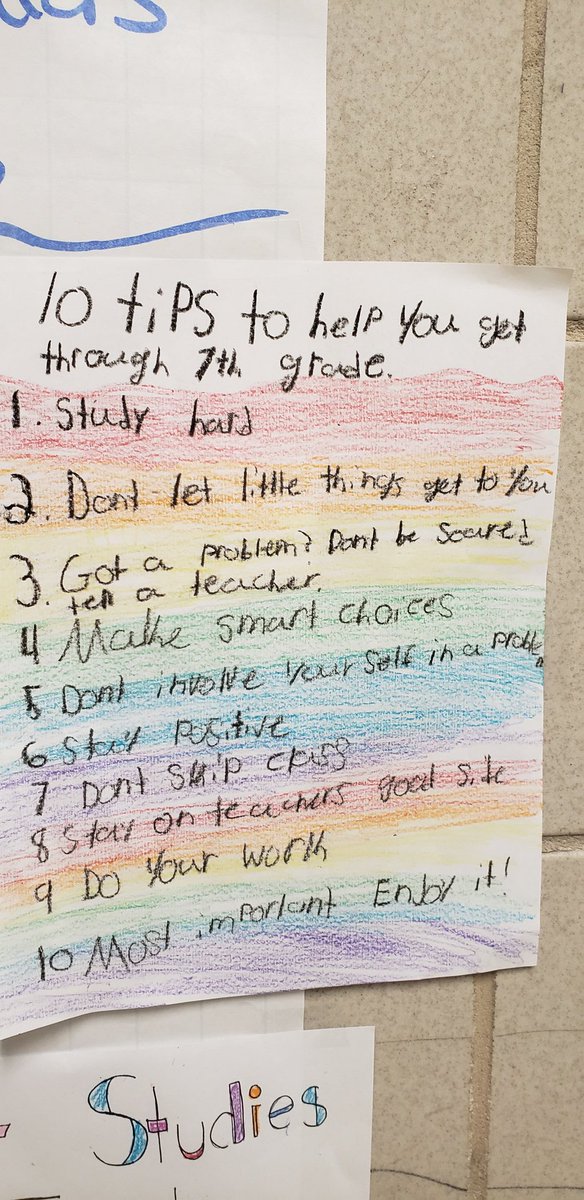 10 tiPS to help You get
through 7th grade.
1. Study hard
2. Dont let little things get to You
3. Got a problem? Dont be Scared
tell a teacher.
4 Make smart choices
5 Dont involve YourSelf in a problem
6 Stay Positive
7 Dont Skip class
8 Stay on teachers good side
9 Do Your work
10 Most important Enjoy it!
Studies